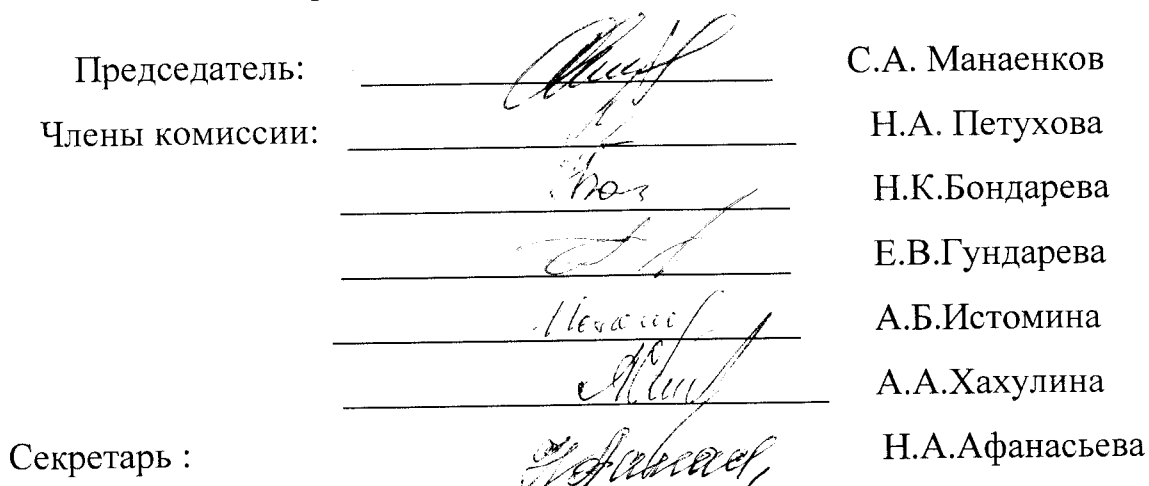 Председатель: С.А. Манаенков
Члены комиссии: Н.А. Петухова
Н.К.Бондарева
Е.В.Гундарева
А.Б.Истомина
А.А.Хахулина
Секретарь : Н.А.Афанасьева